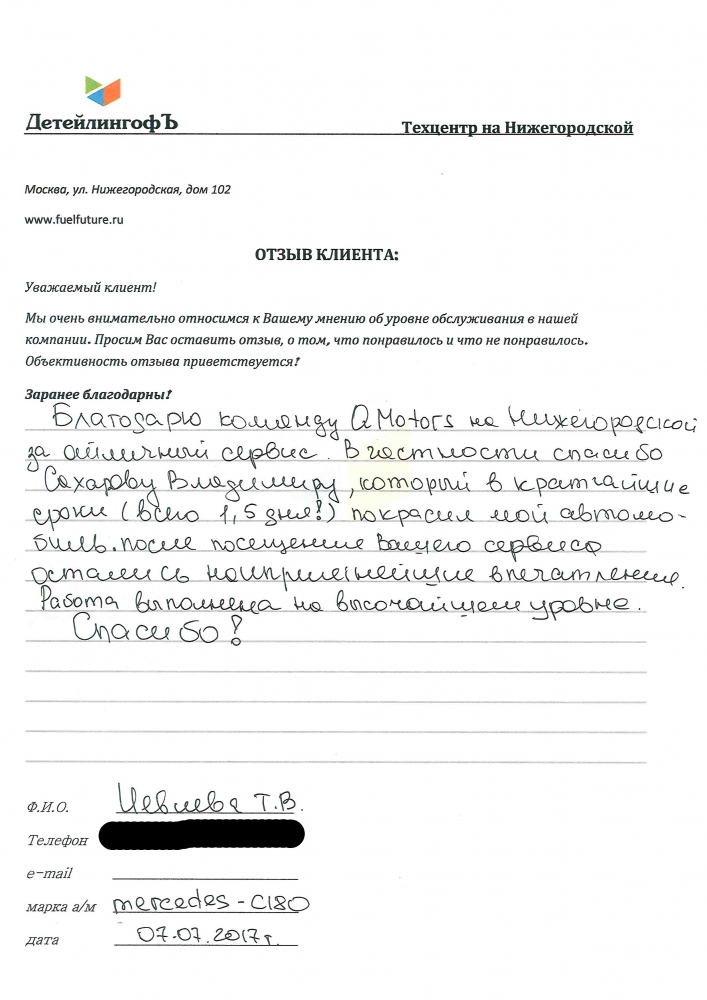 ДетейлингофЪ
Техцентр на Нижегородской
Москва, ул. Нижегородская, дом 102
www.fuelfuture.ru
ОТЗЫВ КЛИЕНТА:
Уважаемый клиент!
Мы очень внимательно относимся к Вашему мнению об уровне обслуживания в нашей
компании. Просим Вас оставить отзыв, о том, что понравилось и что не понравилось.
Объективность отзыва приветствуется!
Заранее благодарны!
Благодарю команду QMotors на Нижегородской
за отличный сервис. В частности спасибо
Сахарову Владимиру, который в кратчайшие
сроки (всего 1,5 дня!) покрасил мой автомо-
биль. после посещение вашего сервиса
остались наиприятнейшие впечатления.
Работа выполнена на высочайшем уровне.
Спасибо!
Ф.И.О. Т.В.
Телефон
e-mail
марка а/м mercedes - C180
дата 07.07.2017г.